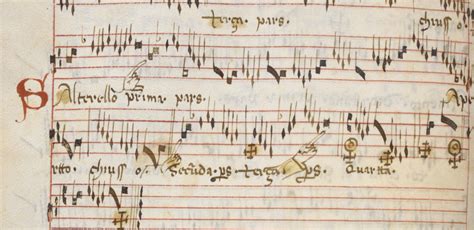 Terza pars. chiuss o.
Salterello prima pars. Ap
rto. chiuss o. Secũda. ps Terza. ps. Quartta.